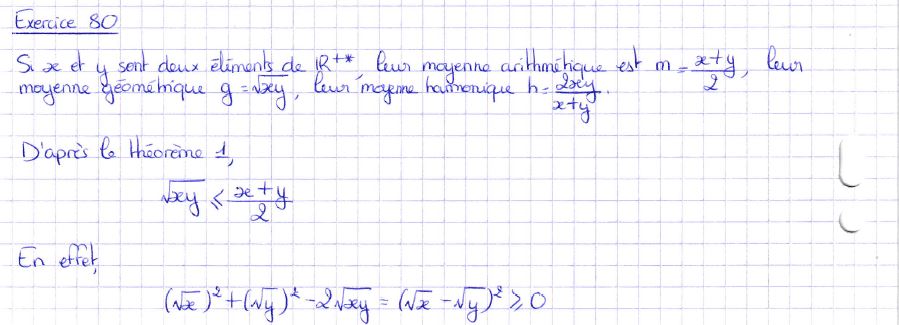 Exercice 80
Si x et y sont deux éléments de ℝ+*, leur moyenne arithmétique est m = (x+y)/2, leur
moyenne géométrique g = √xy, leur moyenne harmonique h = 2xy/(x+y).
D'après le théorème 1,
√xy ⩽ (x+y)/2
En effet,
(√x)² + (√y)² - 2√xy = (√x - √y)² ⩾ 0